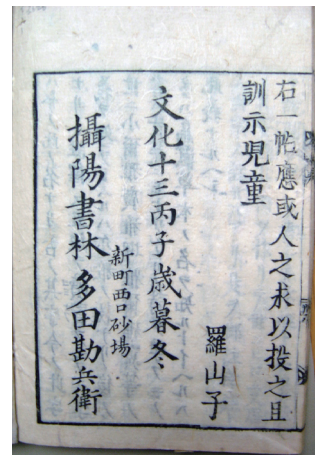 右一帖應或人之求以投之且
訓示児童
羅山子
文化十三丙子歳暮冬
新町西口砂場
攝陽書林 多田勘兵衛